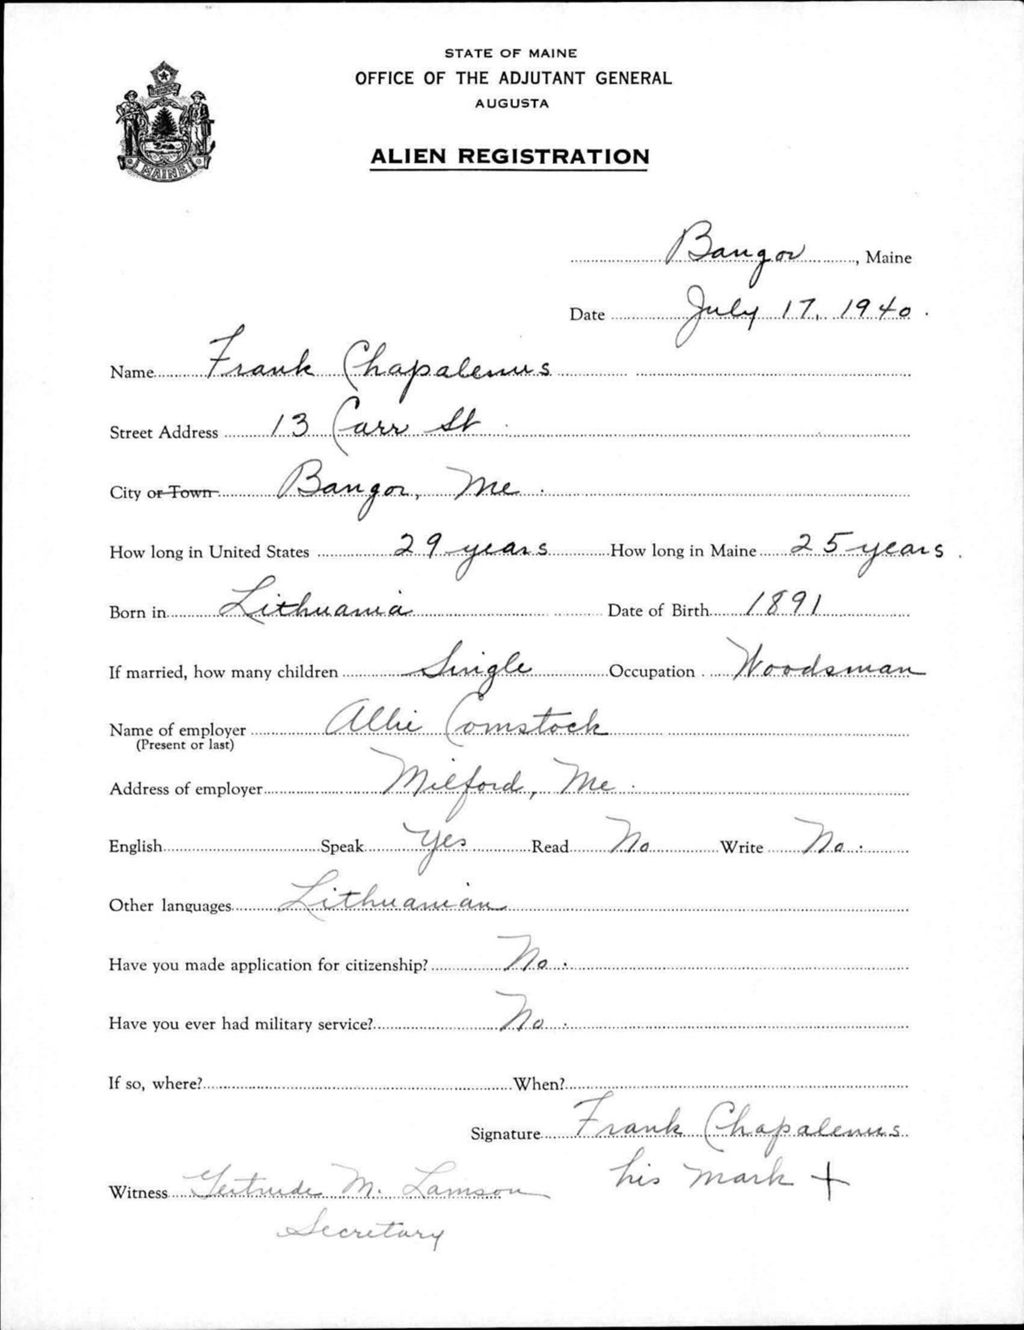 STATE OF MAINE
OFFICE OF THE ADJUTANT GENERAL
AUGUSTA
ALIEN REGISTRATION
MAINE
Bangor, Maine
Date July 17, 1940.
Name Frank Chapalenus
Street Address 13 Carr St.
City or Town Bangor, Me.
How long in United States 29 years How long in Maine 25 years.
Born in Lithuania Date of Birth 1891
If married, how many children Single Occupation Woodsman
Name of employer Allie Comstock
(Present or last)
Address of employer Milford, Me.
English Speak Yes Read No Write No.
Other languages Lithuanian
Have you made application for citizenship? No.
Have you ever had military service? No.
If so, where? When?
Signature Frank Chapalenus
his mark +
Witness Gertrude M. Lamson
Secretary